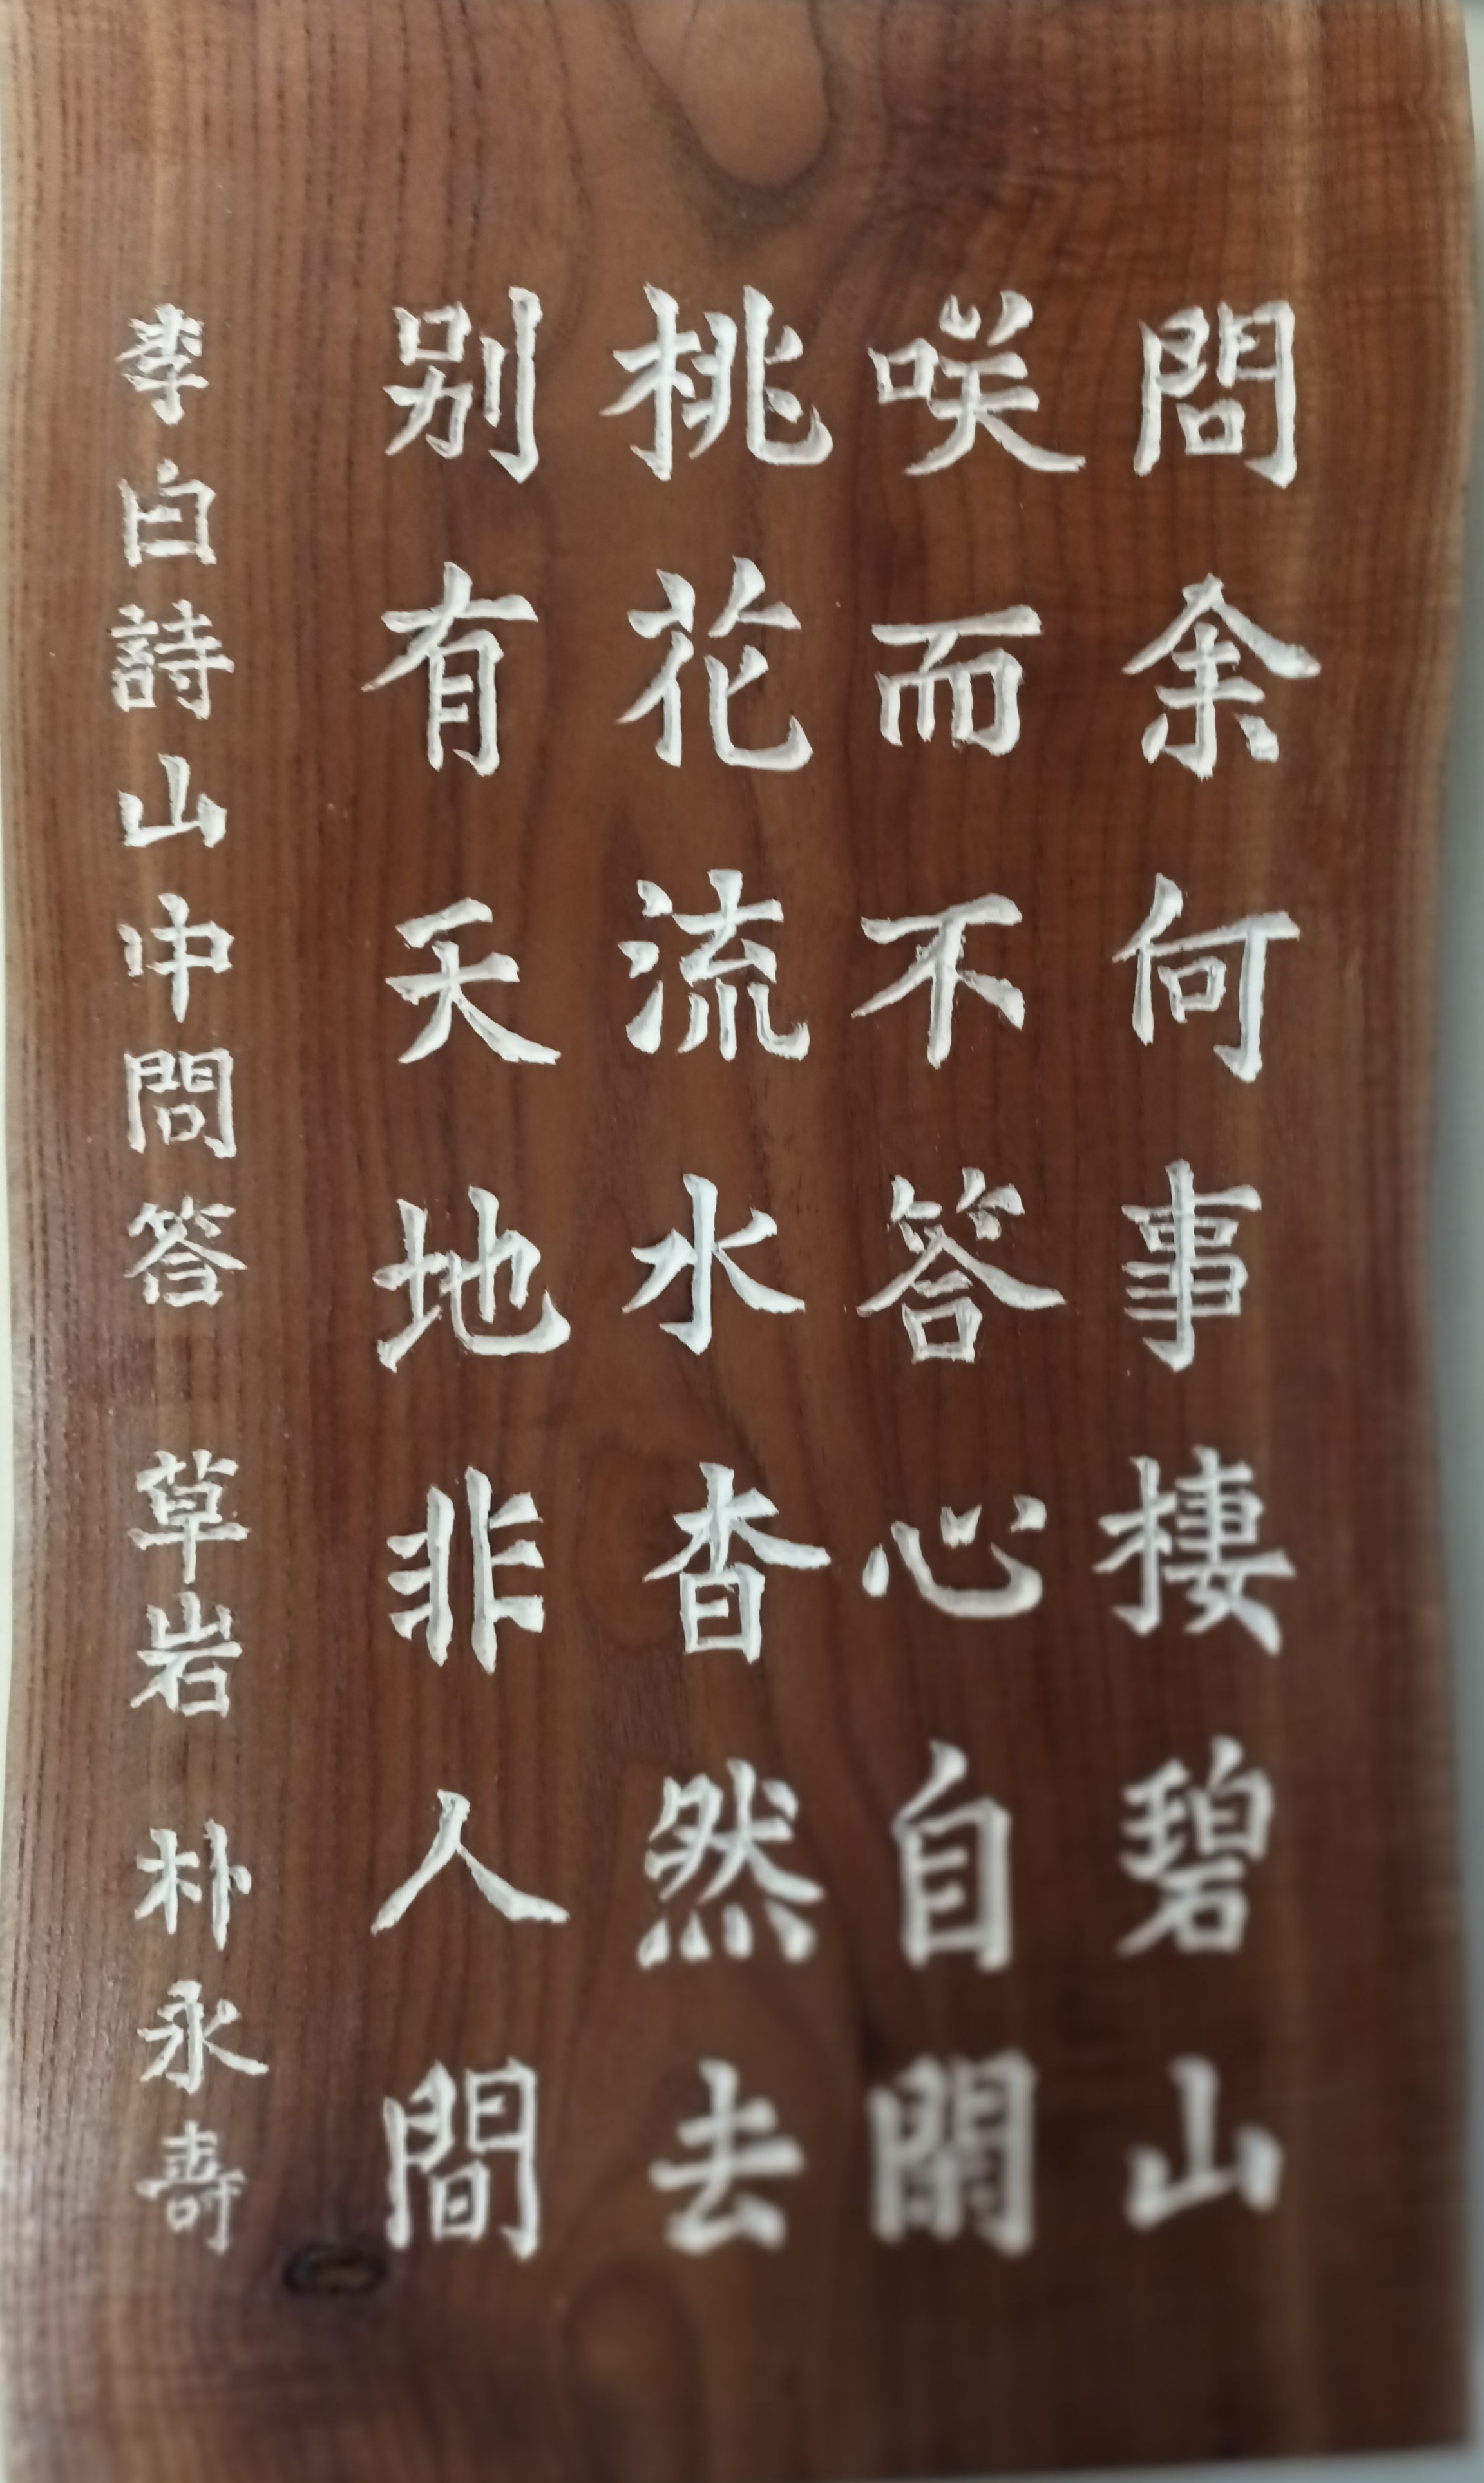 問余何事棲碧山
咲而不答心自閑
桃花流水杳然去
别有天地非人間
李白詩山中問答 草岩 朴永壽